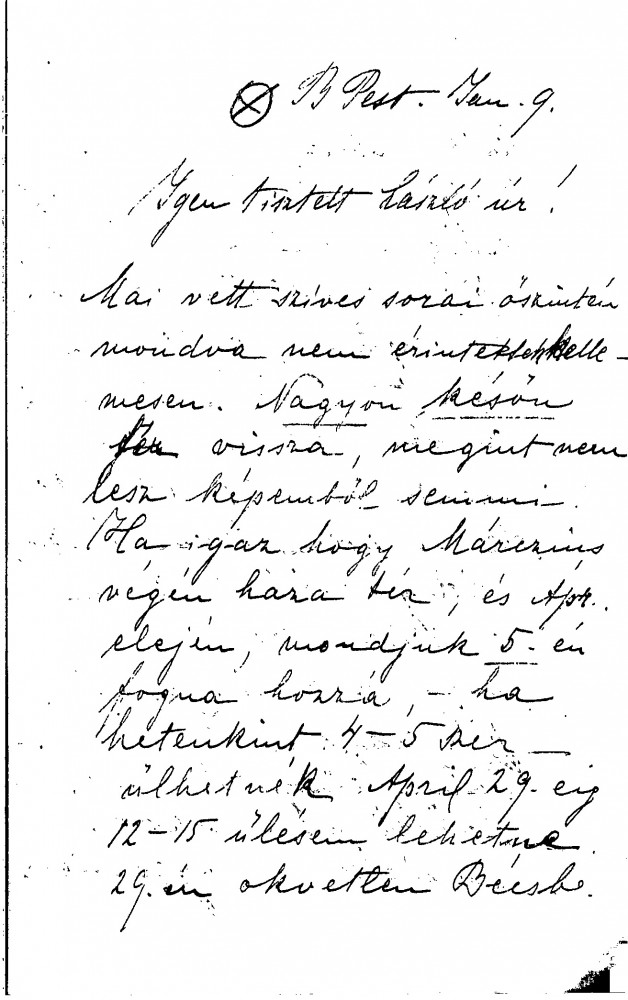 B Pest. Jan. 9.
Igen tisztelt László úr!
Mai vett szíves sorai őszintén
mondva nem érintettek kelle-
mesen. Nagyon későn
tér vissza, megint nem
lesz képemből semmi.
Ha igaz hogy Márczius
végén haza tér, és Apr.
elején, mondjuk 5.-én
fogna hozzá, – ha
hetenkint 4–5 szer
ülhetnék April 29.eig
12–15 ülésem lehetne.
29.én okvetlen Bécsbe.